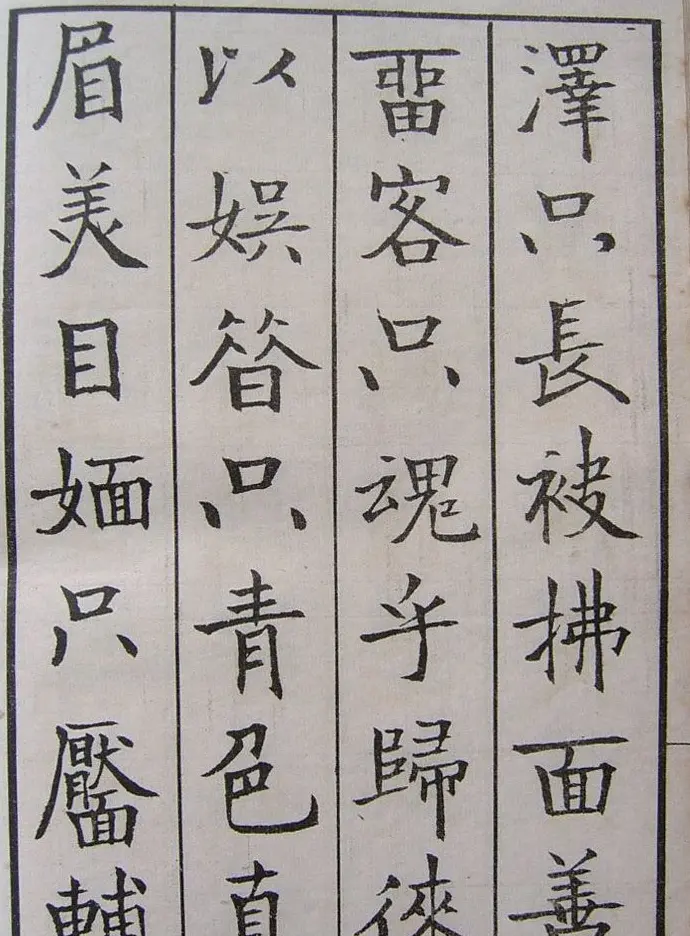 澤只長袂拂面善
畱客只魂乎歸徠
以娛昝只青色直
眉美目媔只靨輔